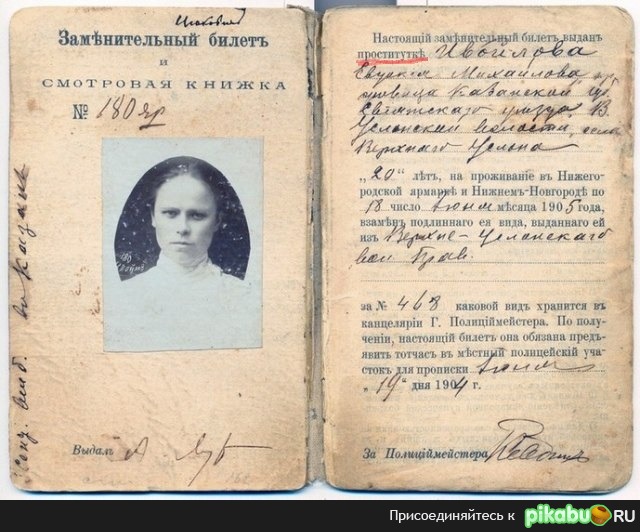 Замѣнительный билетъ
и
СМОТРОВАЯ КНИЖКА
№ 180 яр
въ Казань
Выдалъ
Настоящій замѣнительный билетъ выданъ
проституткѣ Ивойлова
Евдокія Михайлова
Казанской губ
уѣзда, В.
Услонской волости, села
Верхняго Услона
„20" лѣтъ, на проживаніе въ Нижего-
родской ярмаркѣ и Нижнемъ-Новгородѣ по
18 число Іюня мѣсяца 1905 года,
взамѣнъ подлиннаго ея вида, выданнаго ей
изъ Верхне-Услонскаго
вол Прав.
за № 468 каковой видъ хранится въ
канцеляріи Г. Полиціймейстера. По полу-
ченіи, настоящій билетъ она обязана предъ-
явить тотчасъ въ мѣстный полицейскій уча-
стокъ для прописки Іюня
„19" дня 1904 г.
За Полиціймейстера
Присоединяйтесь к pikabu.RU